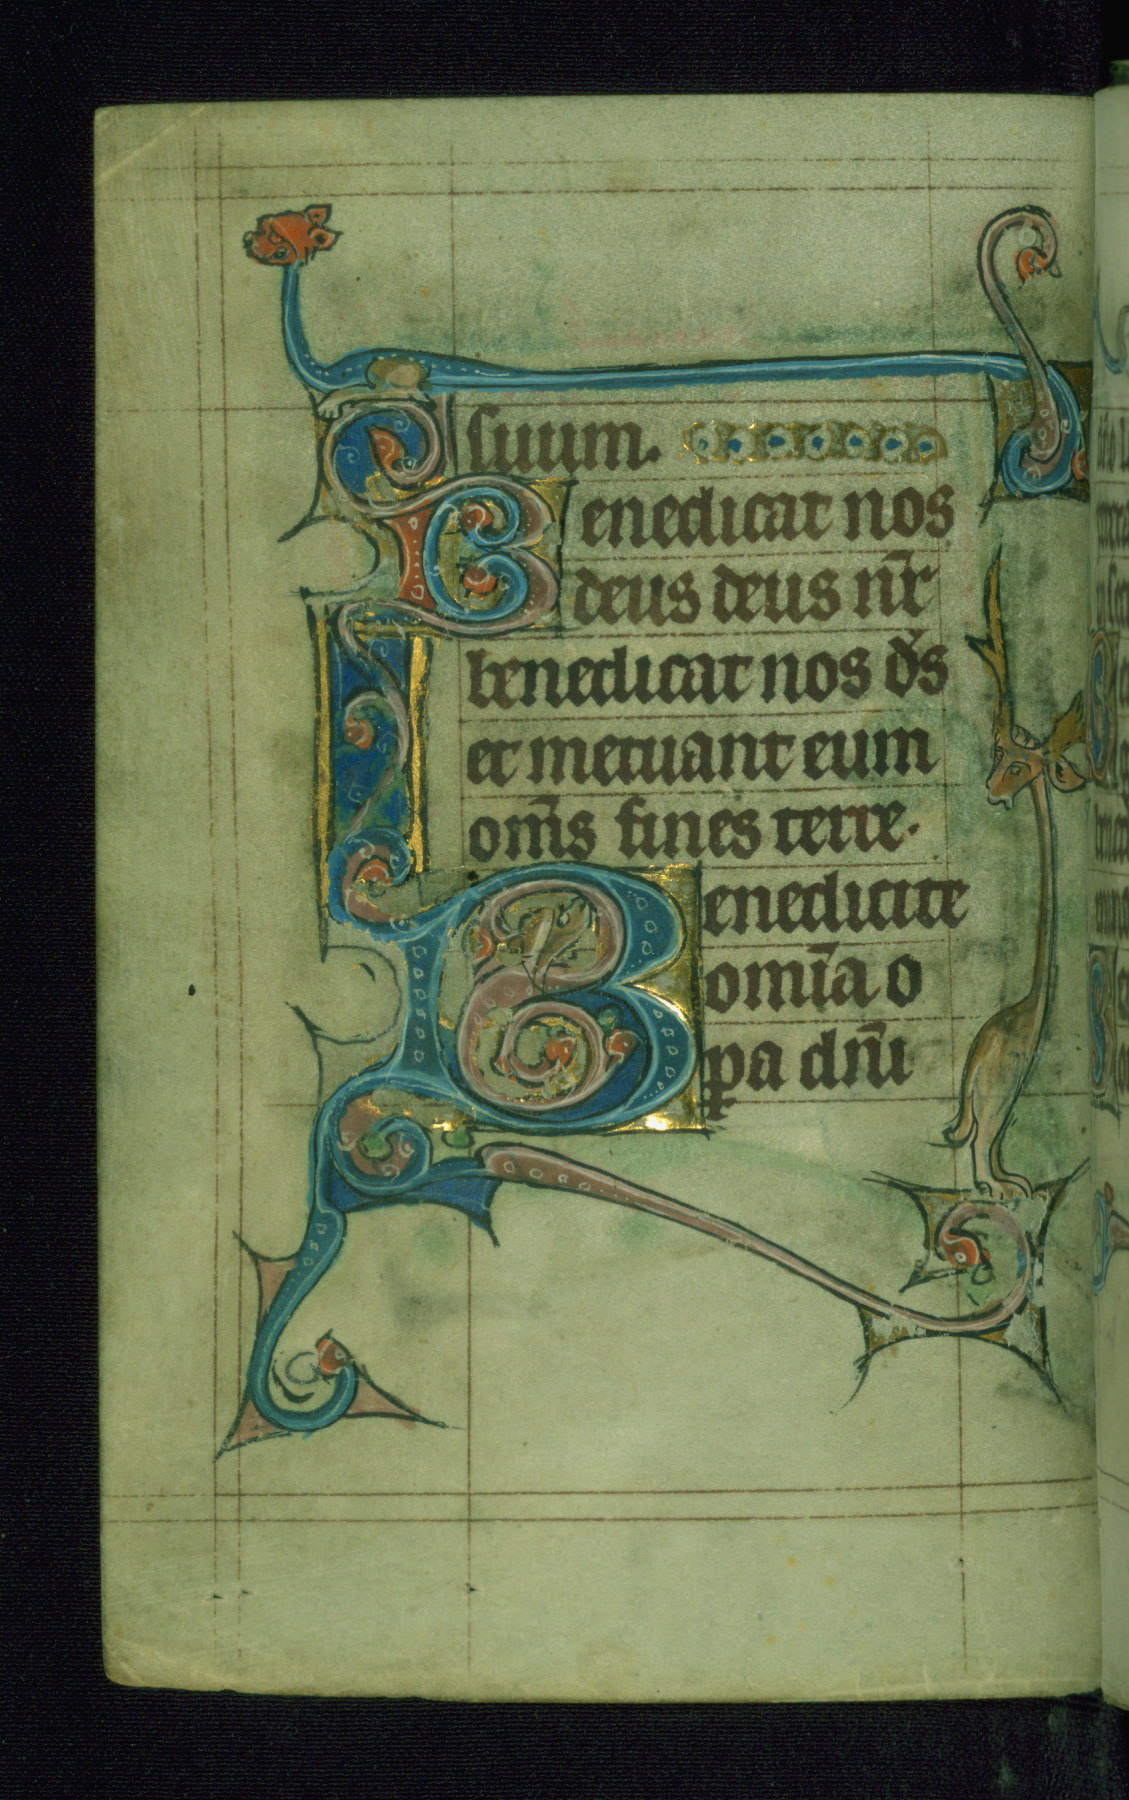 suum.
Benedicat nos
deus deus nr̃
benedicat nos ds̃
et metuant eum
om̃s fines terre.
Benedicite
omĩa o
pa dñi